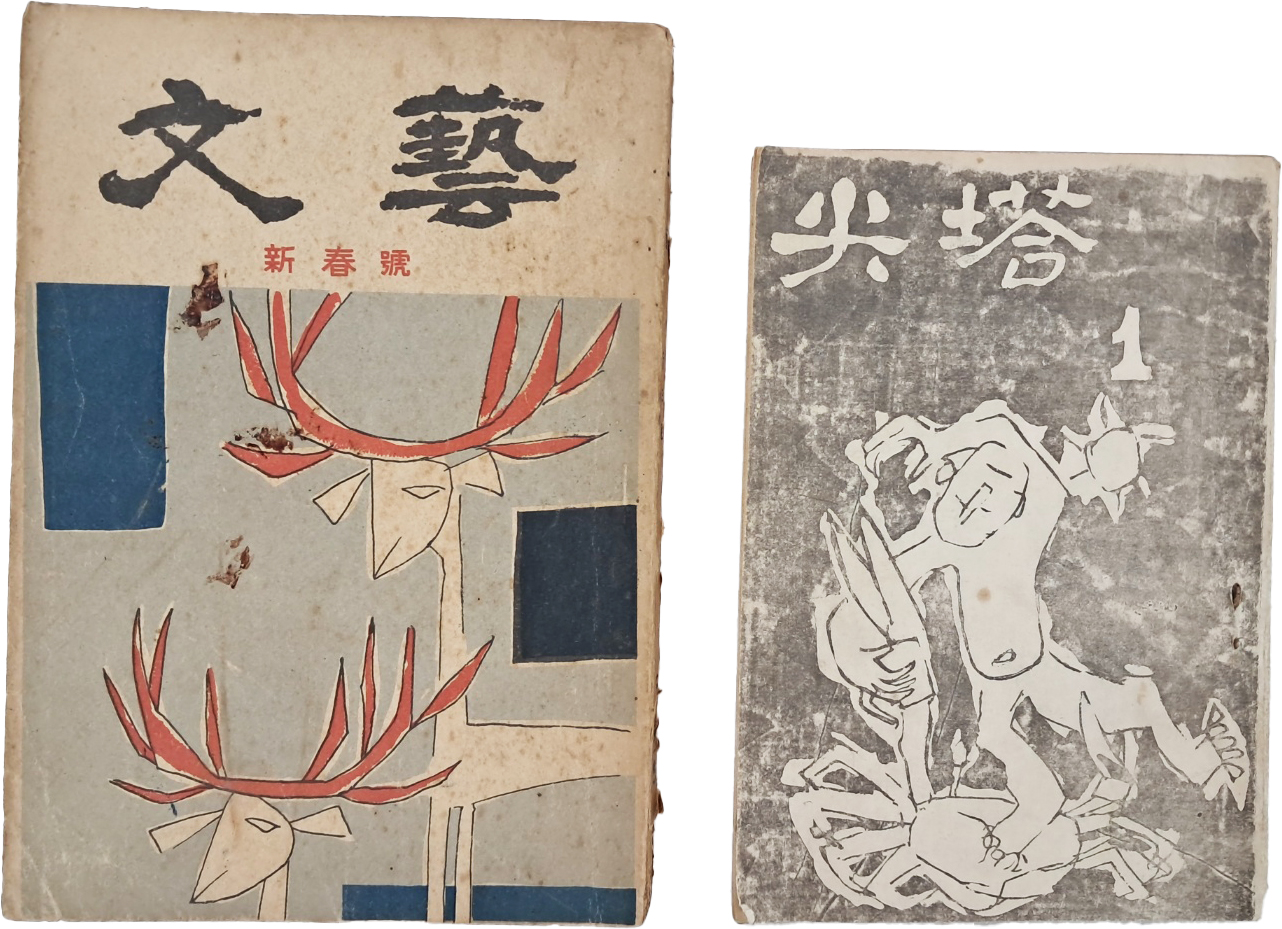 文藝
新春號
尖塔
1